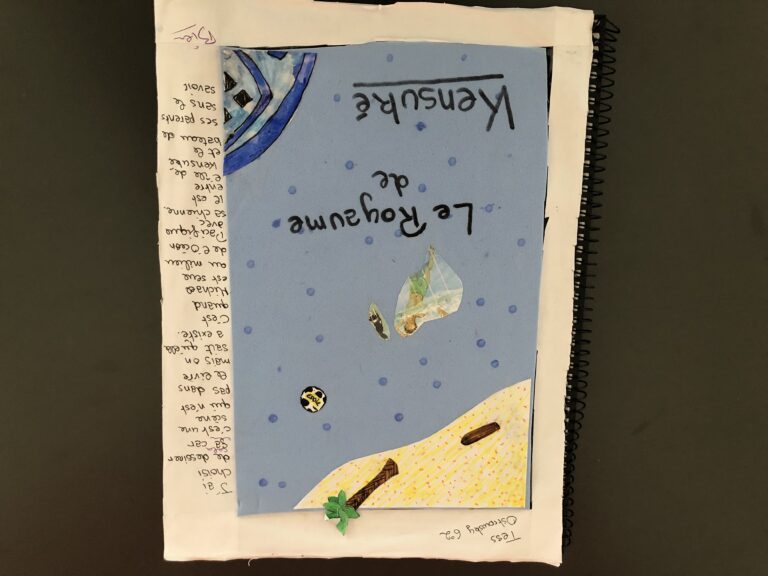 Tess
6°2
Le Royaume
de
Kensuké
J'ai
choisi
de dessiner
ça car
c'est une
scène
qui n'est
pas dans
le livre
mais on
sait qu'ella
a existé.
C'est
quand
Michael
est seul
au milieu
de l'Océan
Pacifique
avec
sa chienne.
Il est
entre
l'île de
Kensuke
et le
bateau de
ses parents
sans le
savoir
Bien